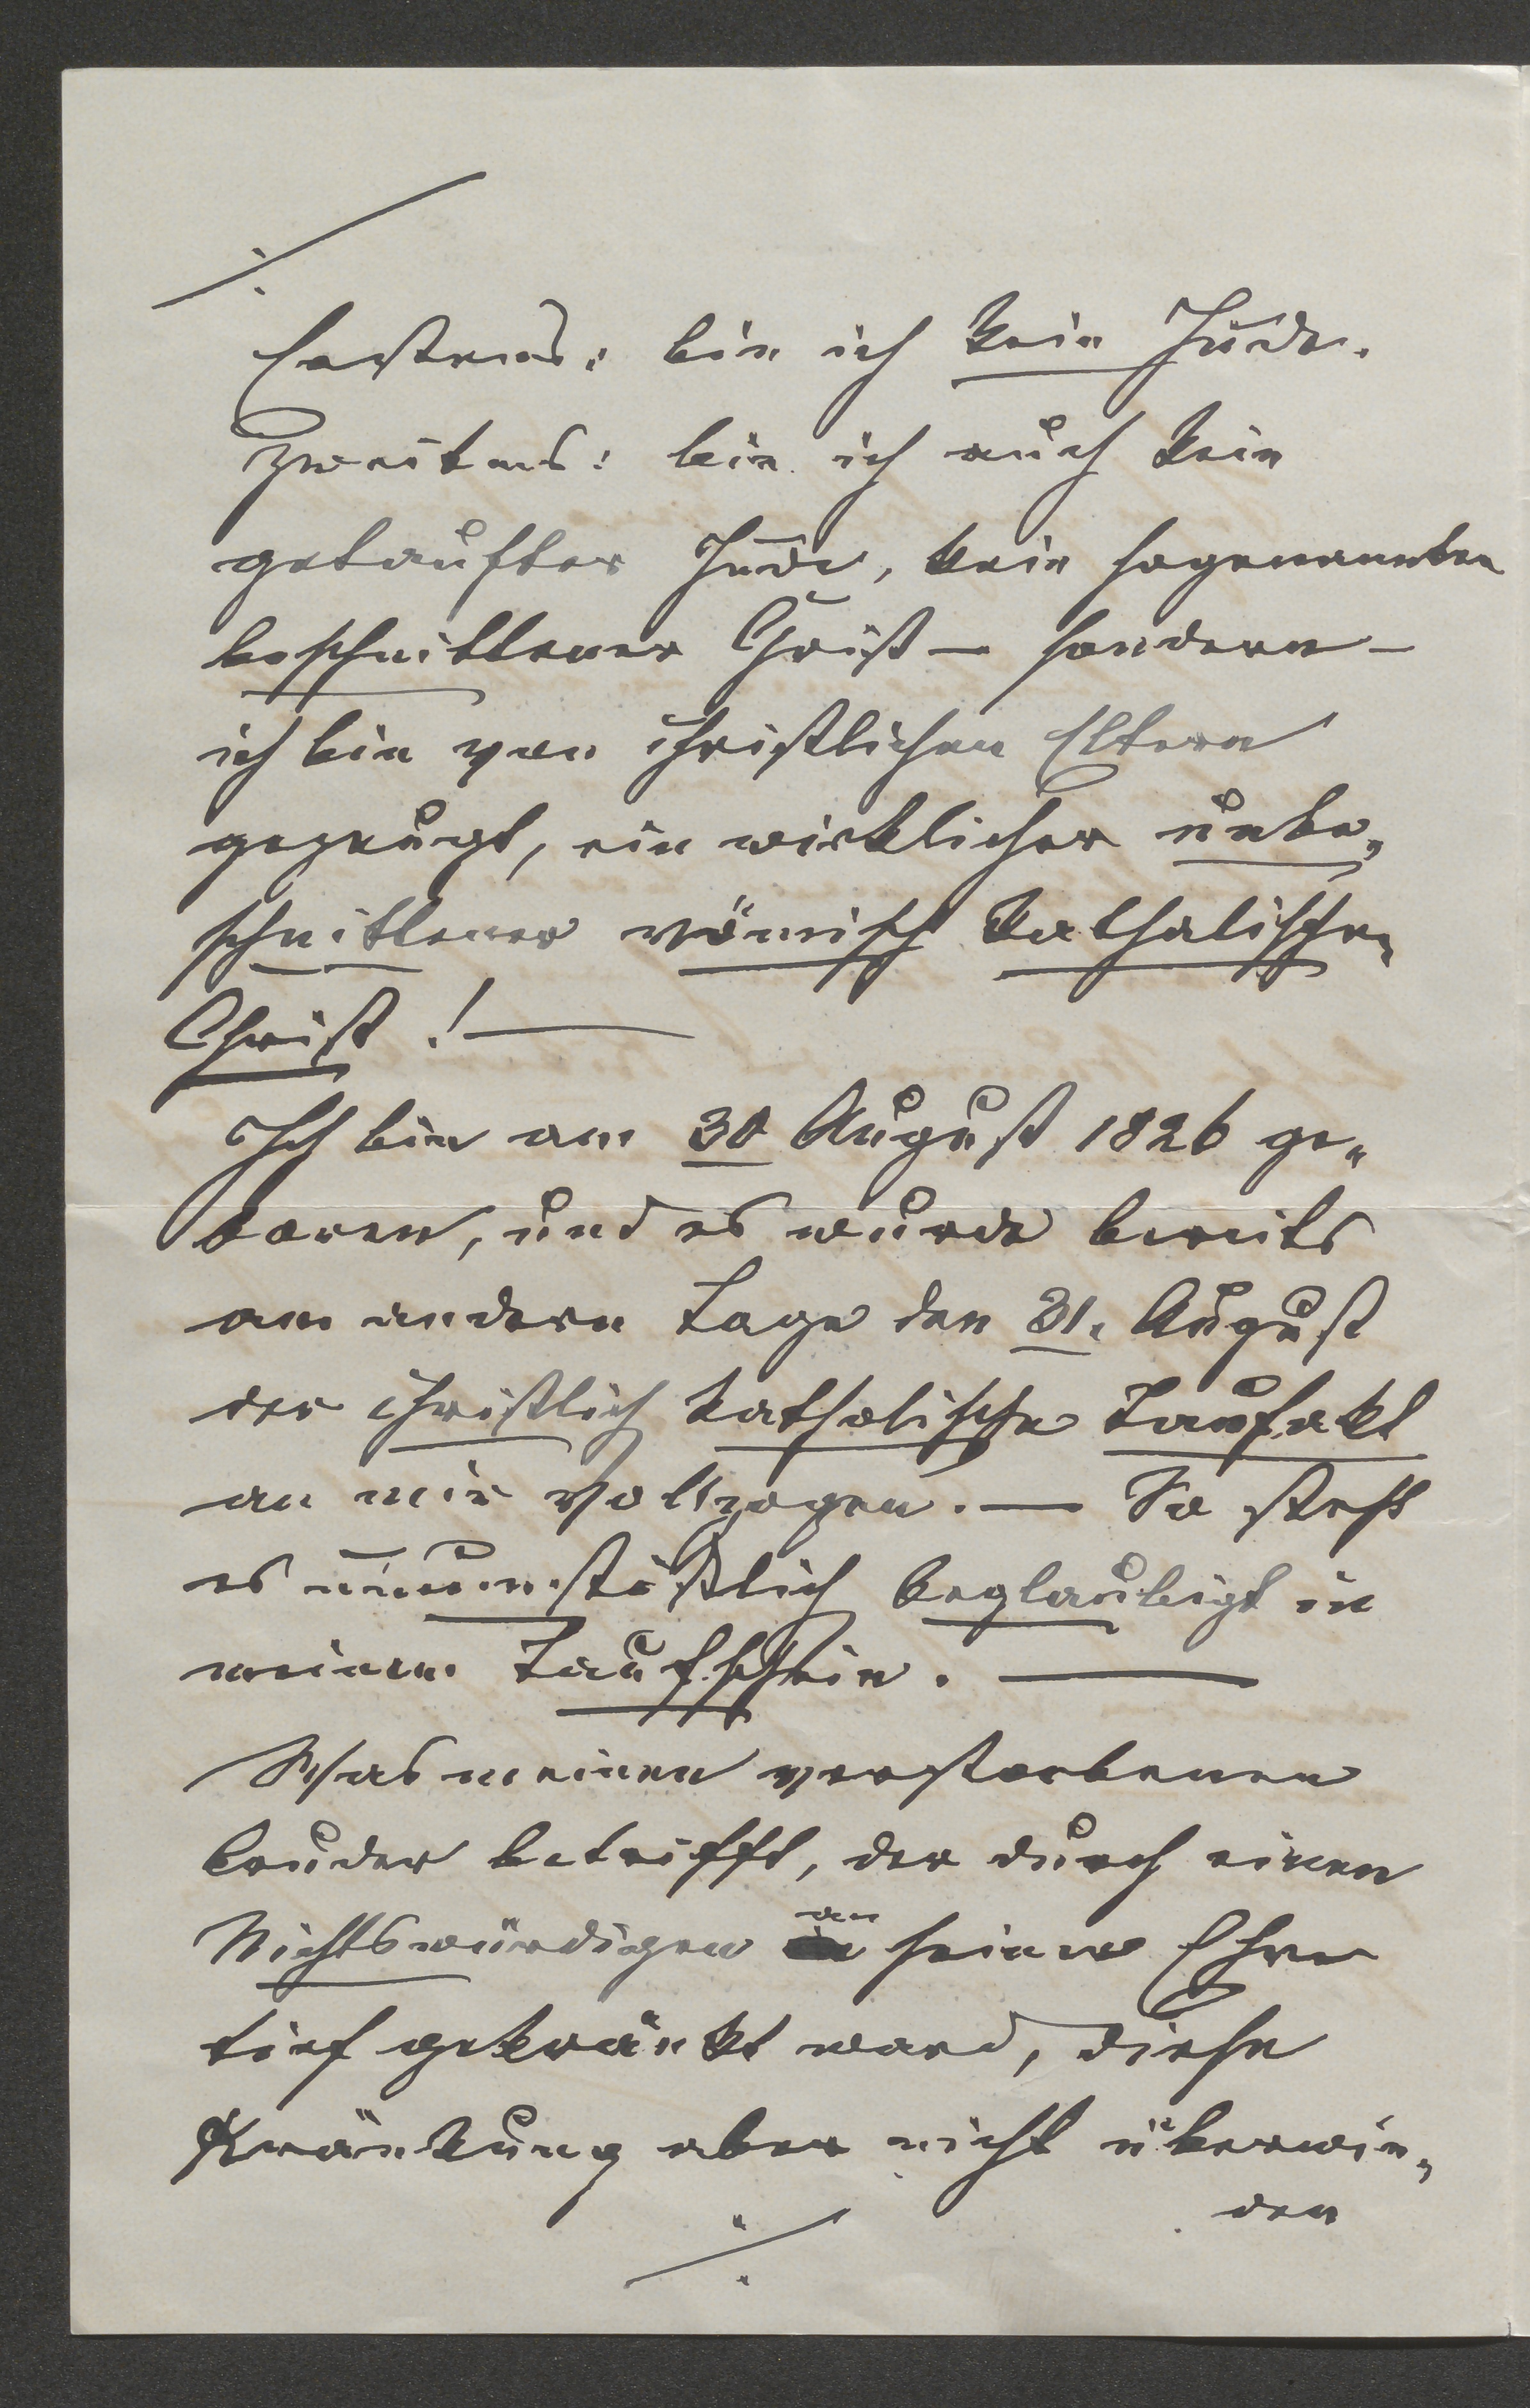 ./.
Erstens: bin ich kein Jude.
Zweitens: bin ich auch kein
getaufter Jude, kein sogenannter
beschnittener Christ – sondern –
ich bin von christlichen Eltern
gezeugt, ein wirklicher unbe„
schnittener römisch katholischer
Christ! —
Ich bin am 30 August 1826 ge„
boren, und es wurde bereits
am andern Tage den 31. August
der christlich katholische Taufakt
an mir vollzogen. — So steht
es unumstößlich beglaubigt in
meinem Taufschein. —
Was meinen verstorbenen
Bruder betrifft, der durch einen
Nichtswürdigen an seiner Ehre
tief gekränkt ward, diese
Kränkung aber nicht überwin„
den
./.